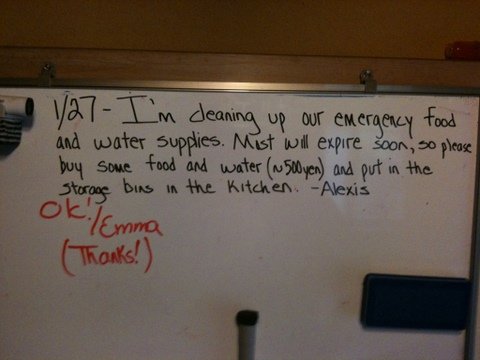 1/27 - I'm cleaning up our emergency food
and water supplies. Most will expire soon, so please
buy some food and water (~500yen) and put in the
storage bins in the kitchen. -Alexis
OK! /Emma
(Thanks!)